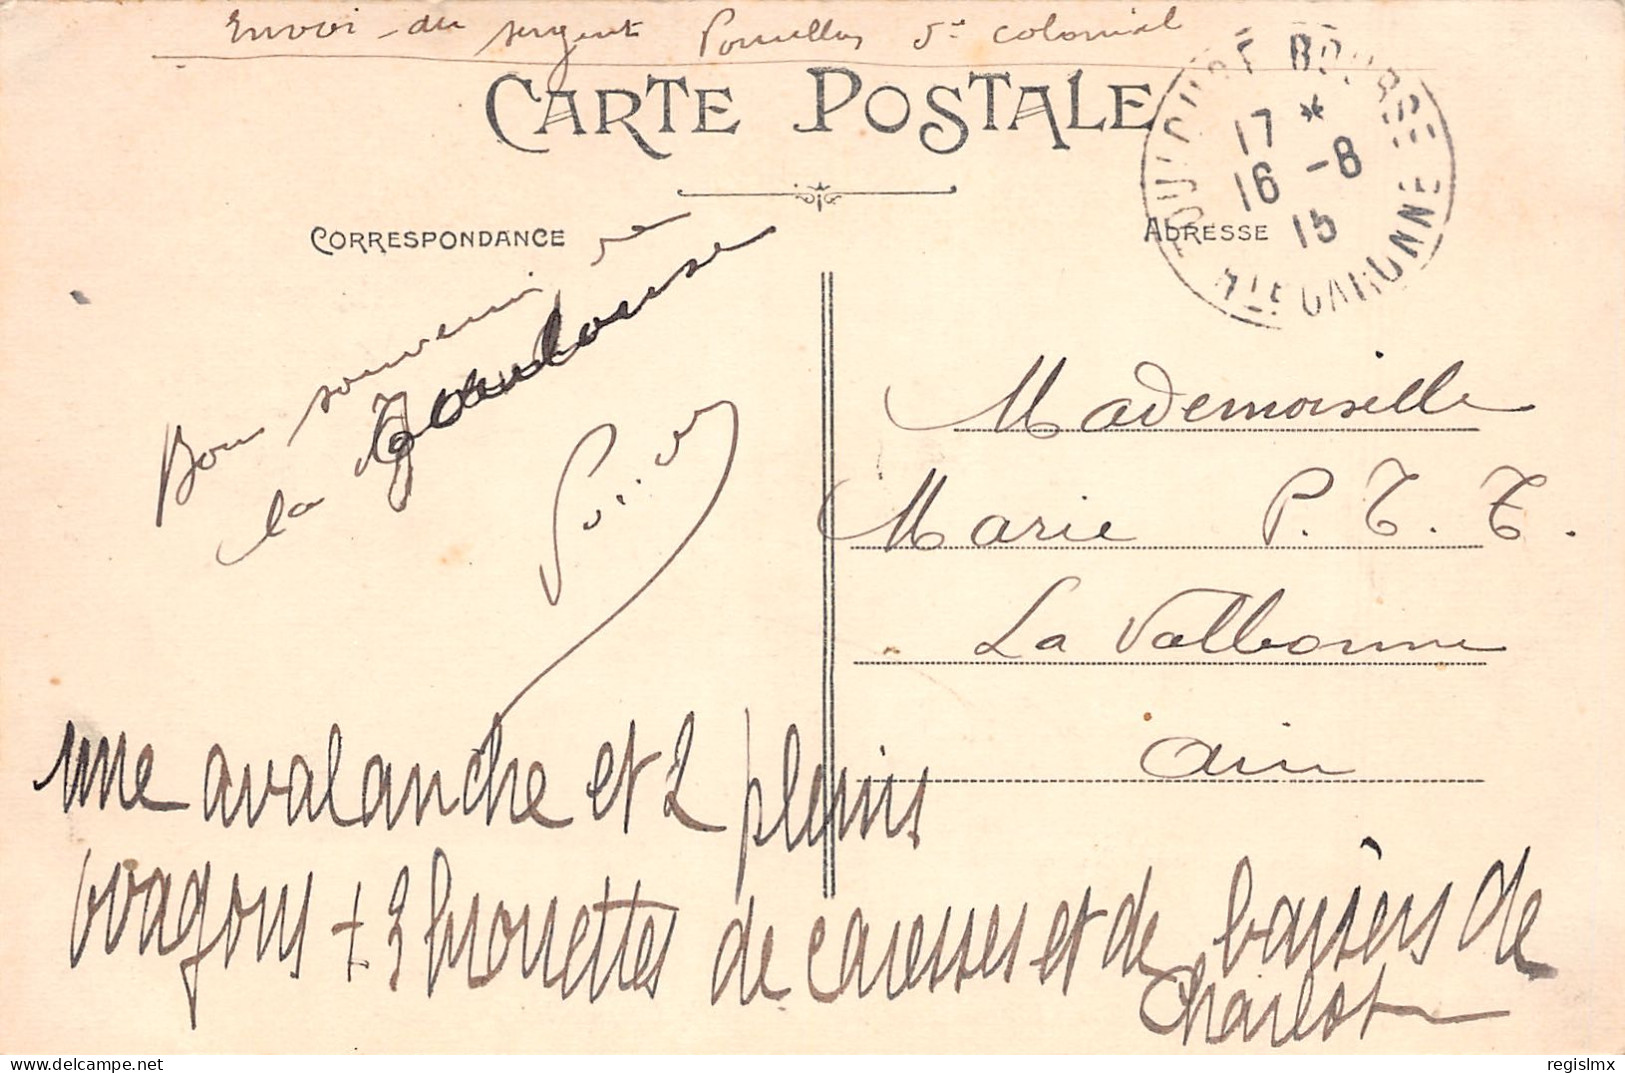 Envoi du sergent 5e colonial
CARTE POSTALE
TOULOUSE BOURSE
17 *
16 -8
15
HTE GARONNE
CORRESPONDANCE
ADRESSE
Bon souvenir de
la Toulouse
Mademoiselle
Marie P. T. T.
La Valbonne
Ain
une avalanche et 2 pleins
wagons + 3 brouettes de caresses et de baisers de
Charlot
regislmx